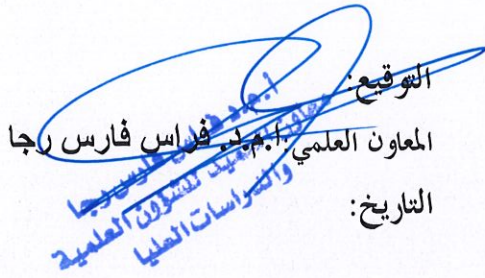 التوقيع:
المعاون العلمي:ا.م.د. فراس فارس رجا
التاريخ:
أ.م.د. فراس فارس رجا
معاون العميد للشؤون العلمية
والدراسات العليا